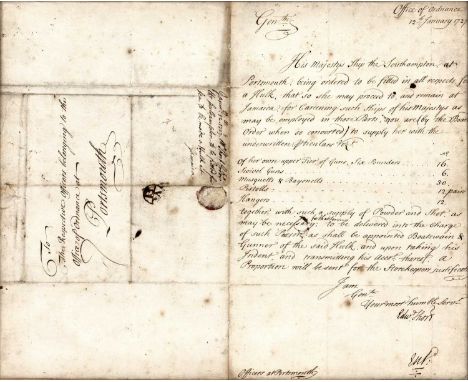 Office of Ordnance
12th January 172
Gentn
His Majestys Ship the Southampton, at
Portsmouth, being ordered to be fitted in all respects, for
a Hulk, that so she may proceed to and remain at
Jamaica; for Careening such Ships of his Majestys as
may be employed in those Parts, you are (by the Board
Order when so converted) to supply her with the
underwritten Particulars Vizt
of her own upper Tire of Guns, Six Pounders 16
Swivel Guns 6
Musquetts & Bayonetts 30
Pistolls 12 pair
Hangers 12
together with such a supply of Powder and Shot, as
may be necessary; to be delivered into the Charge
of such Person as shall be appointed Boatswain &
Gunner of the said Hulk, and upon taking his
Indent and transmitting his Acct. thereof a
Proportion will be sent for the Storekeepers justification
I am
Gentn
Your most humble Servt
Officers at Portsmouth
To
The Respective Officers belonging to the
Office of Ordnance at
Portsmouth